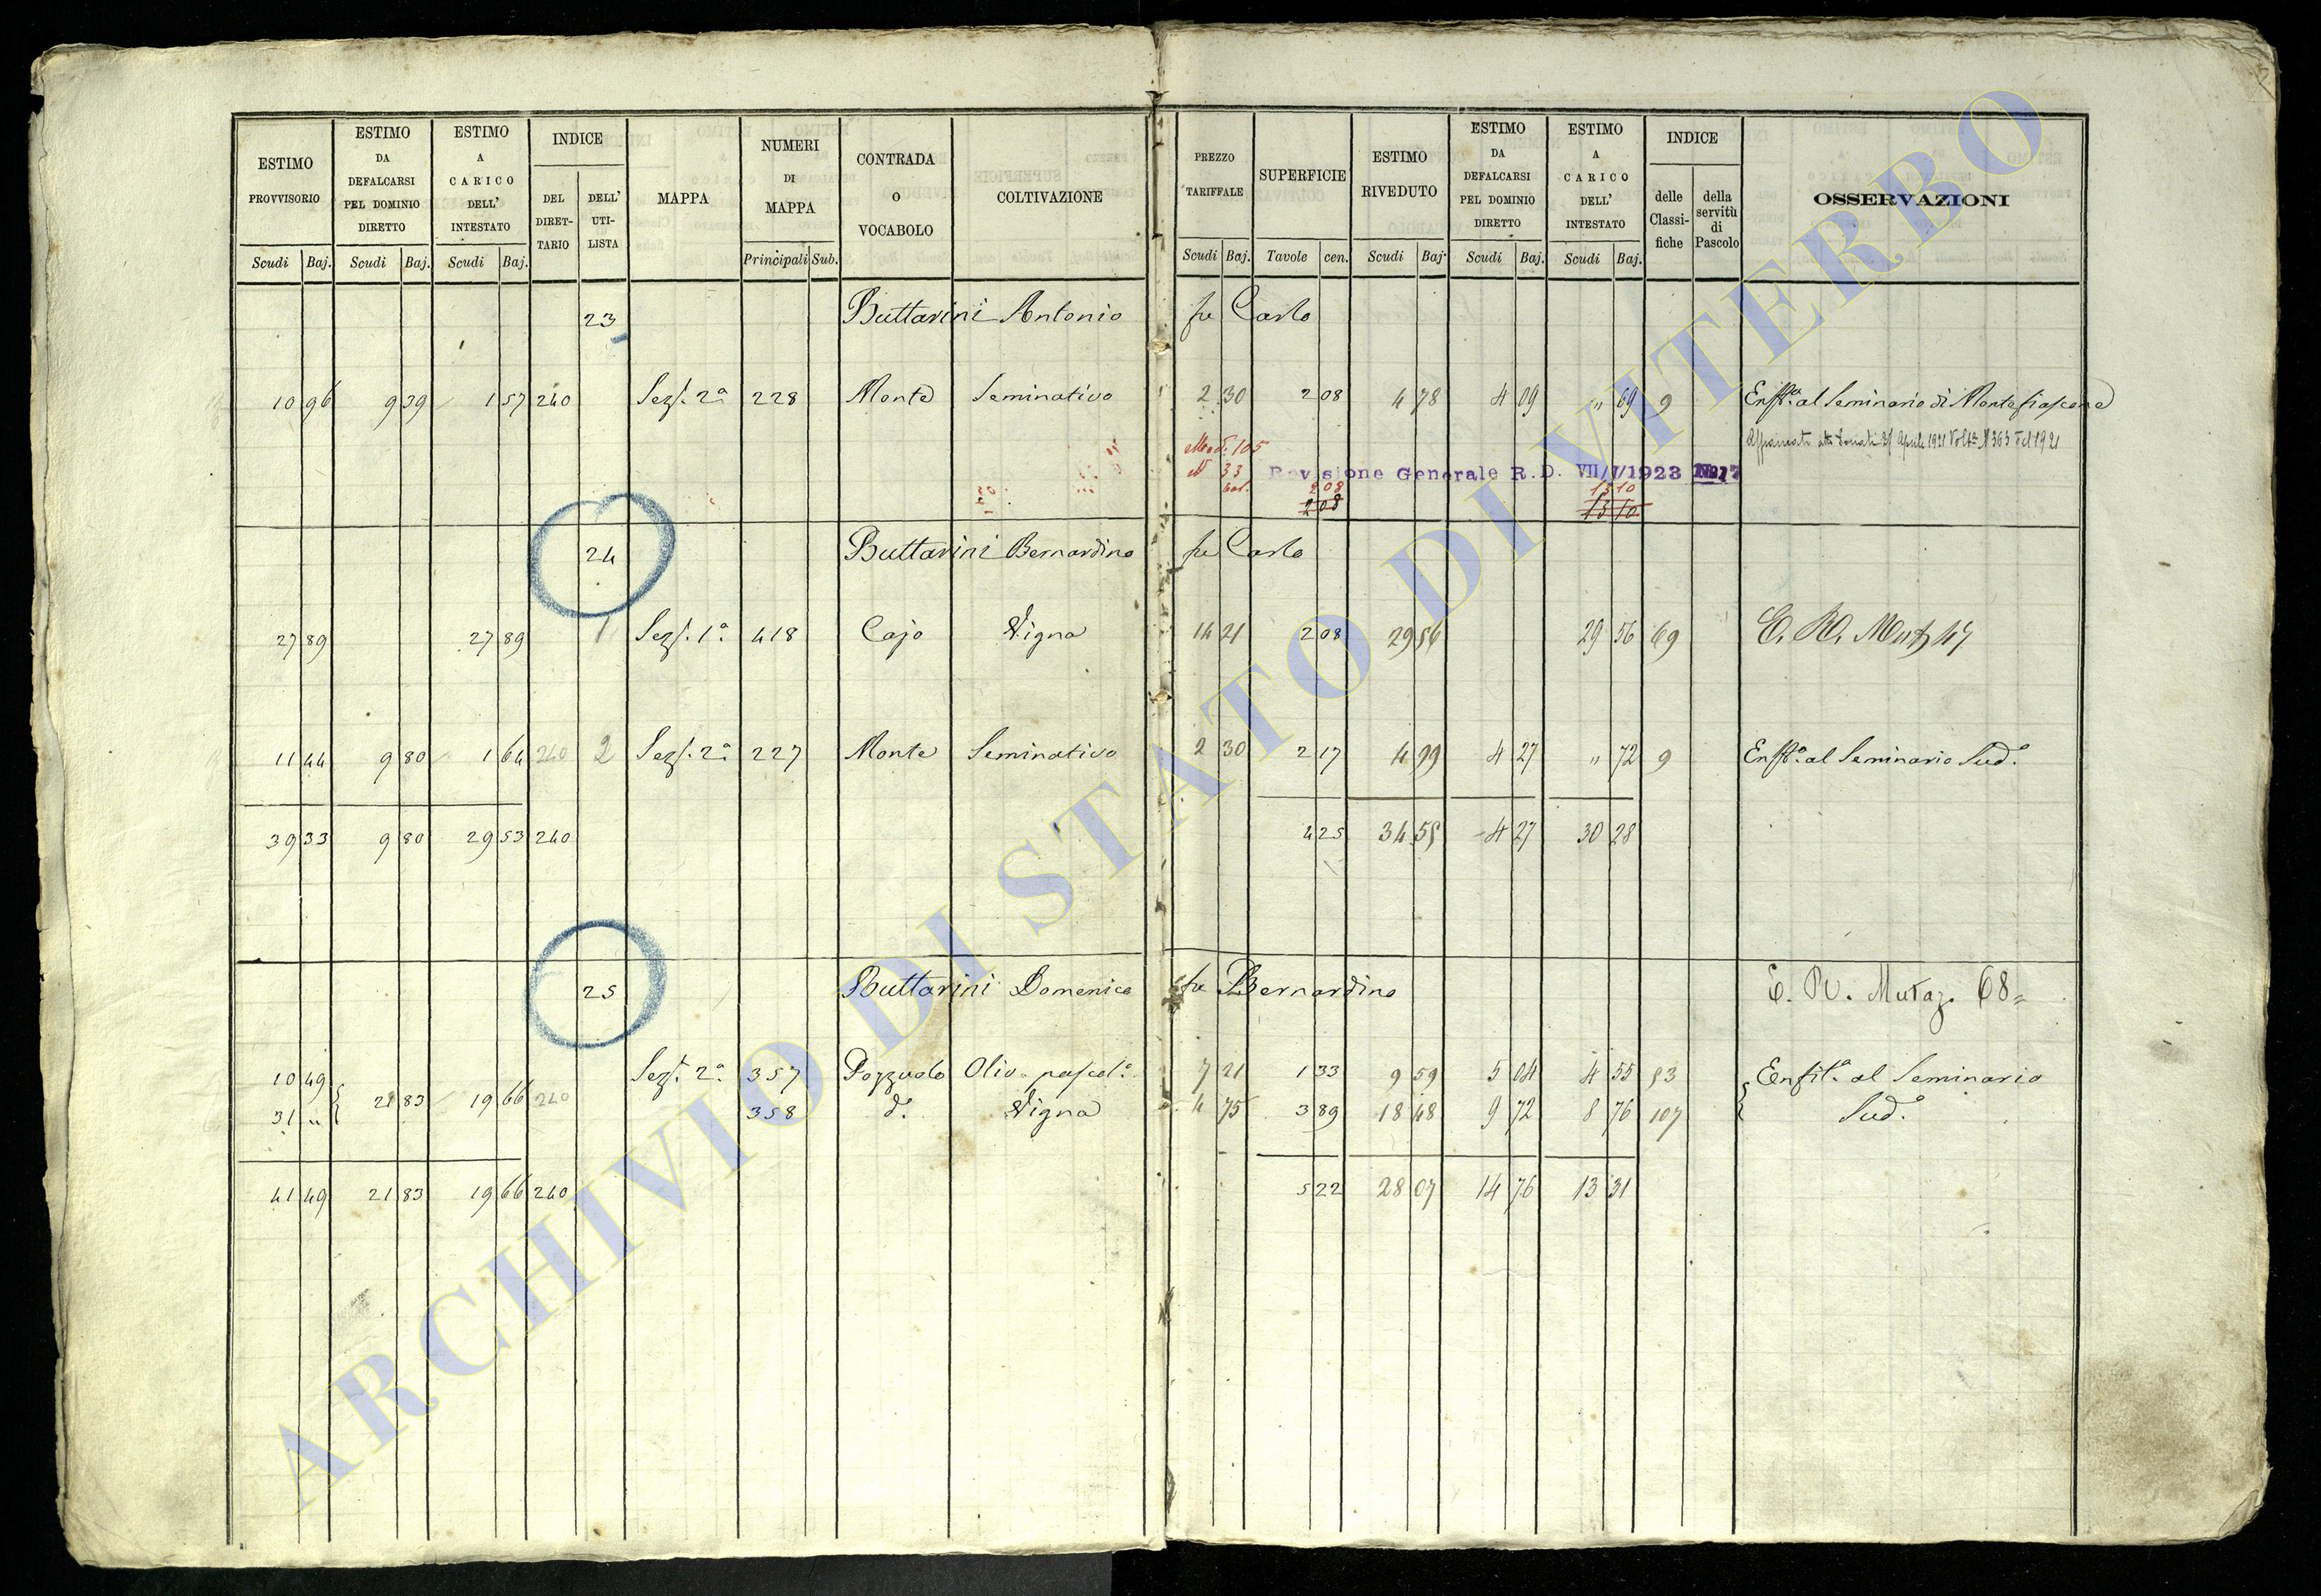 ESTIMO PROVVISORIO ESTIMO DA DEFALCARSI PEL DOMINIO DIRETTO ESTIMO A CARICO DELL' INTESTATO INDICE DEL DIRETTARIO DELL' UTILISTA MAPPA NUMERI DI MAPPA CONTRADA O VOCABOLO COLTIVAZIONE PREZZO TARIFFALE SUPERFICIE ESTIMO RIVEDUTO ESTIMO DA DEFALCARSI PEL DOMINIO DIRETTO ESTIMO A CARICO DELL' INTESTATO INDICE delle Classifiche della servitù di Pascolo OSSERVAZIONI
Scudi Baj. Scudi Baj. Scudi Baj. Principali Sub. Scudi Baj. Tavole cen. Scudi Baj. Scudi Baj. Scudi Baj.
23 Buttarini Antonio fu Carlo
10 96 9 39 1 57 240 Sez. 2a 228 Monte Seminativo 2 30 2 08 4 78 4 09 " 69 9 Enfta al Seminario di Montefiascone
Aprile 1921 N 363 del 1921
Mod. 105
33
Revisione Generale R.D. VII/I/1923 N. 17
2 08 13 10
2 08 13 10
24 Buttarini Bernardino fu Carlo
27 89 27 89 1 Sez. 1a 418 Cajo Vigna 14 21 2 08 29 56 29 56 69 E. R. Mutaz 47
11 44 9 80 1 64 240 2 Sez. 2a 227 Monte Seminativo 2 30 2 17 4 99 4 27 " 72 9 Enfta al Seminario Sudo
39 33 9 80 29 53 240 4 25 34 55 4 27 30 28
25 Buttarini Domenico fu Bernardino E. R. Mutaz. 68=
10 49 Sez. 2a 357 Pozzuolo Oliv. pascolo 7 21 1 33 9 59 5 04 4 55 53 Enfita al Seminario
31 " 21 83 19 66 240 358 do Vigna 4 75 3 89 18 48 9 72 8 76 107 Sudo
41 49 21 83 19 66 240 5 22 28 07 14 76 13 31
ARCHIVIO DI STATO DI VITERBO